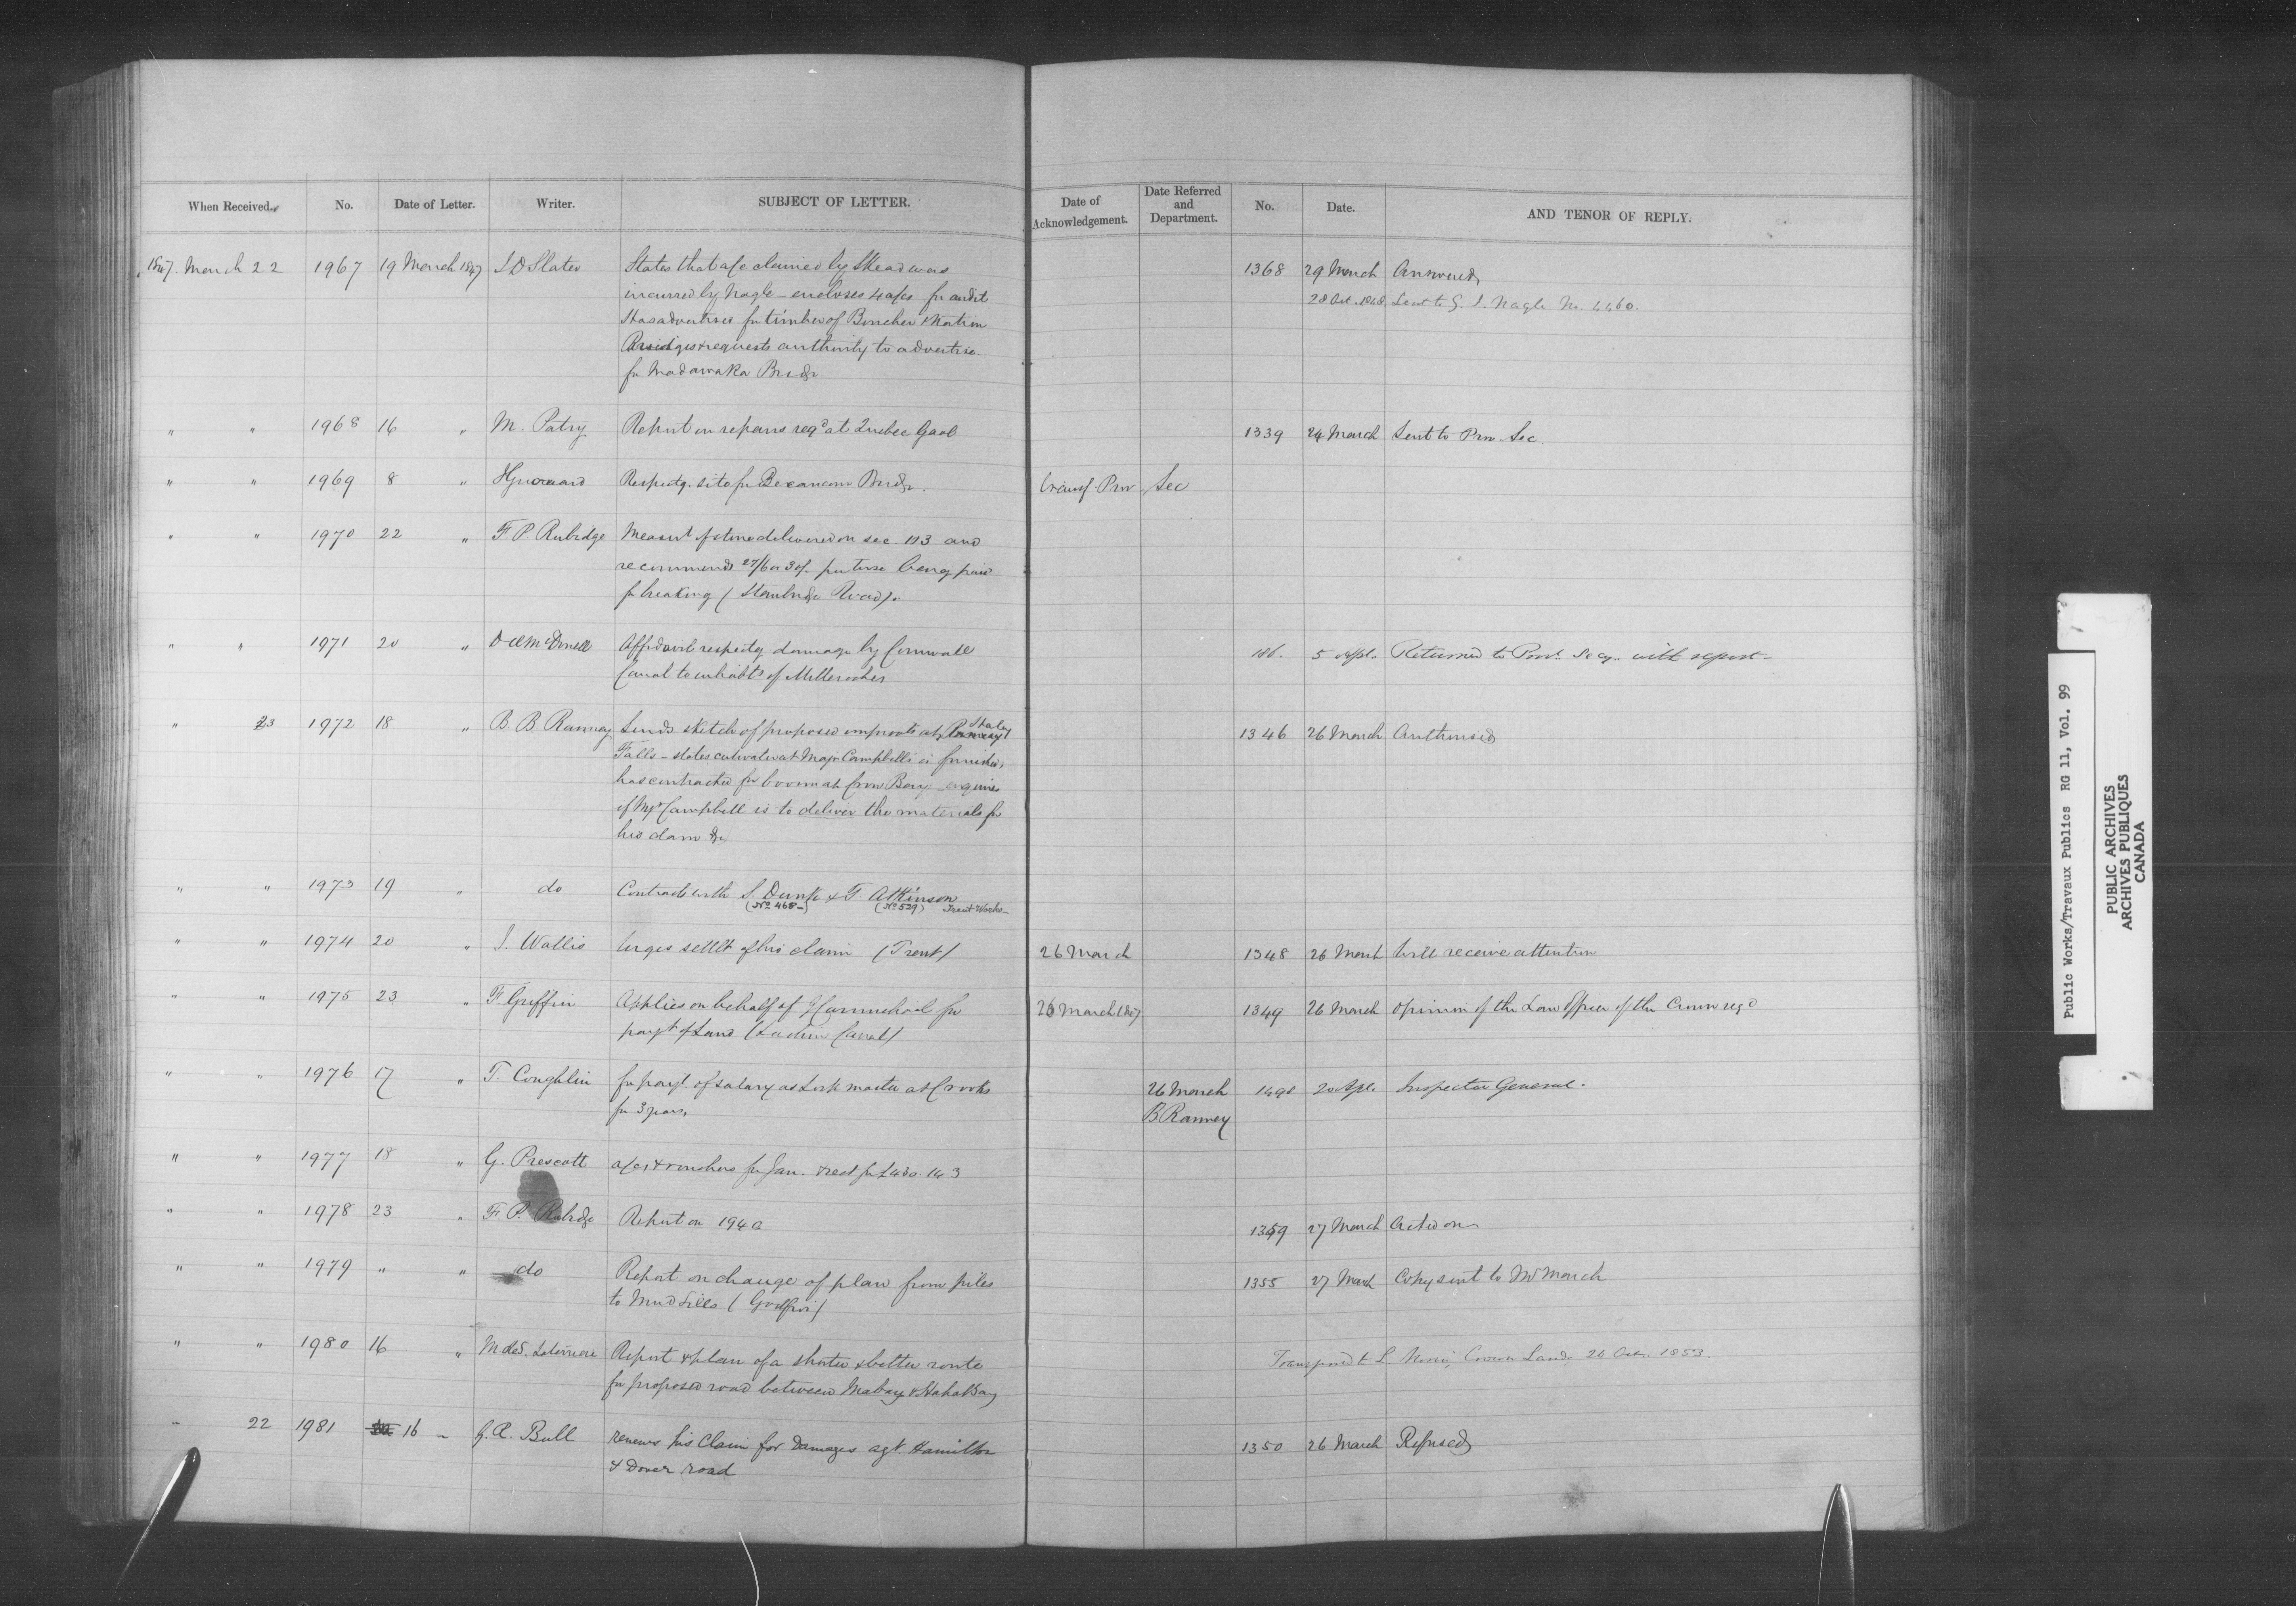 When Received.
No.
Date of Letter.
Writer.
SUBJECT OF LETTER.
Date of Acknowledgement.
Date Referred and Department.
No.
Date.
AND TENOR OF REPLY.
1847. March 22 1967 19 March 1847 J D Slater States that a/c claimed by Skead was 1368 29 March Answered
incurred by Nagle - encloses 4 a/cs for audit 28 Oct. 1848 Sent to G. J. Nagle No. 4460.
Has advertised for timber of Bonchere & Nation
Bridges & requests authority to advertise
for Madawaska Bridge
" " 1968 16 " M. Patry Report on repairs reqd at Quebec Gaol 1339 24 March Sent to Prov. Sec.
" " 1969 8 " Respectg. site for Becancour Bridge. transf. Prov. Sec
" " 1970 22 " F. P. Rubidge Measurt of stone delivered on sec. 1 & 3 and
recommends 27/6 or 30/- per toise being paid
for breaking (Stanbridge Road).
" " 1971 20 " D Æ McDonell Affidavit respectg damage by Cornwall 186. 5 Apl. Returned to Provl. Secy. with report -
Canal to inhabts of Milleroches
" 23 1972 18 " B. B. Ranney Sends sketch of proposed improvts at Healey 1346 26 March Authorised
Falls - states at Major Campbell's is finished,
has contracted for boom at Crow Bay - enquires
if Mjr Campbell is to deliver the materials for
his dam &c
" " 1973 19 " do Contracts with S. Dunk & T. Atkinson
(No 468 -) (No 529) Trent Works -
" " 1974 20 " J. Wallis Urges settlt of his claim (Trent) 26 March 1348 26 March Will receive attention
" " 1975 23 " F. Griffin Applies on behalf of J Carmichael for 26 March 1847 1349 26 March Opinion of the Law Officer of the Crown reqd
payt of Land (Lachine Canal)
" " 1976 17 " T. Coughlin for payt of salary as Lock master at Crooks 26 March 1490 20 Apl. Inspector General.
for 3 years. B Ranney
" " 1977 18 " G. Prescott a/cs & vouchers for Jan. & rect for £430. 14 3
" " 1978 23 " F. P. Rubidge Report on 1940 1359 27 March Acted on
" " 1979 " " do Report on change of plan from piles 1355 27 March Copy sent to Mr March
to Mud Sills (Godfroi)
" " 1980 16 " M de S. Laterriere Report & plan of a shorter & better route Transferred to Crown Lands 26 Oct. 1853.
for proposed road between Malbay & Haha Bay
" 22 1981 16 " G. A. Bull renews his Claim for Damages agt Hamilton 1350 26 March Refused
& Dover road
Public Works/Travaux Publics RG 11, Vol. 99
PUBLIC ARCHIVES
ARCHIVES PUBLIQUES
CANADA